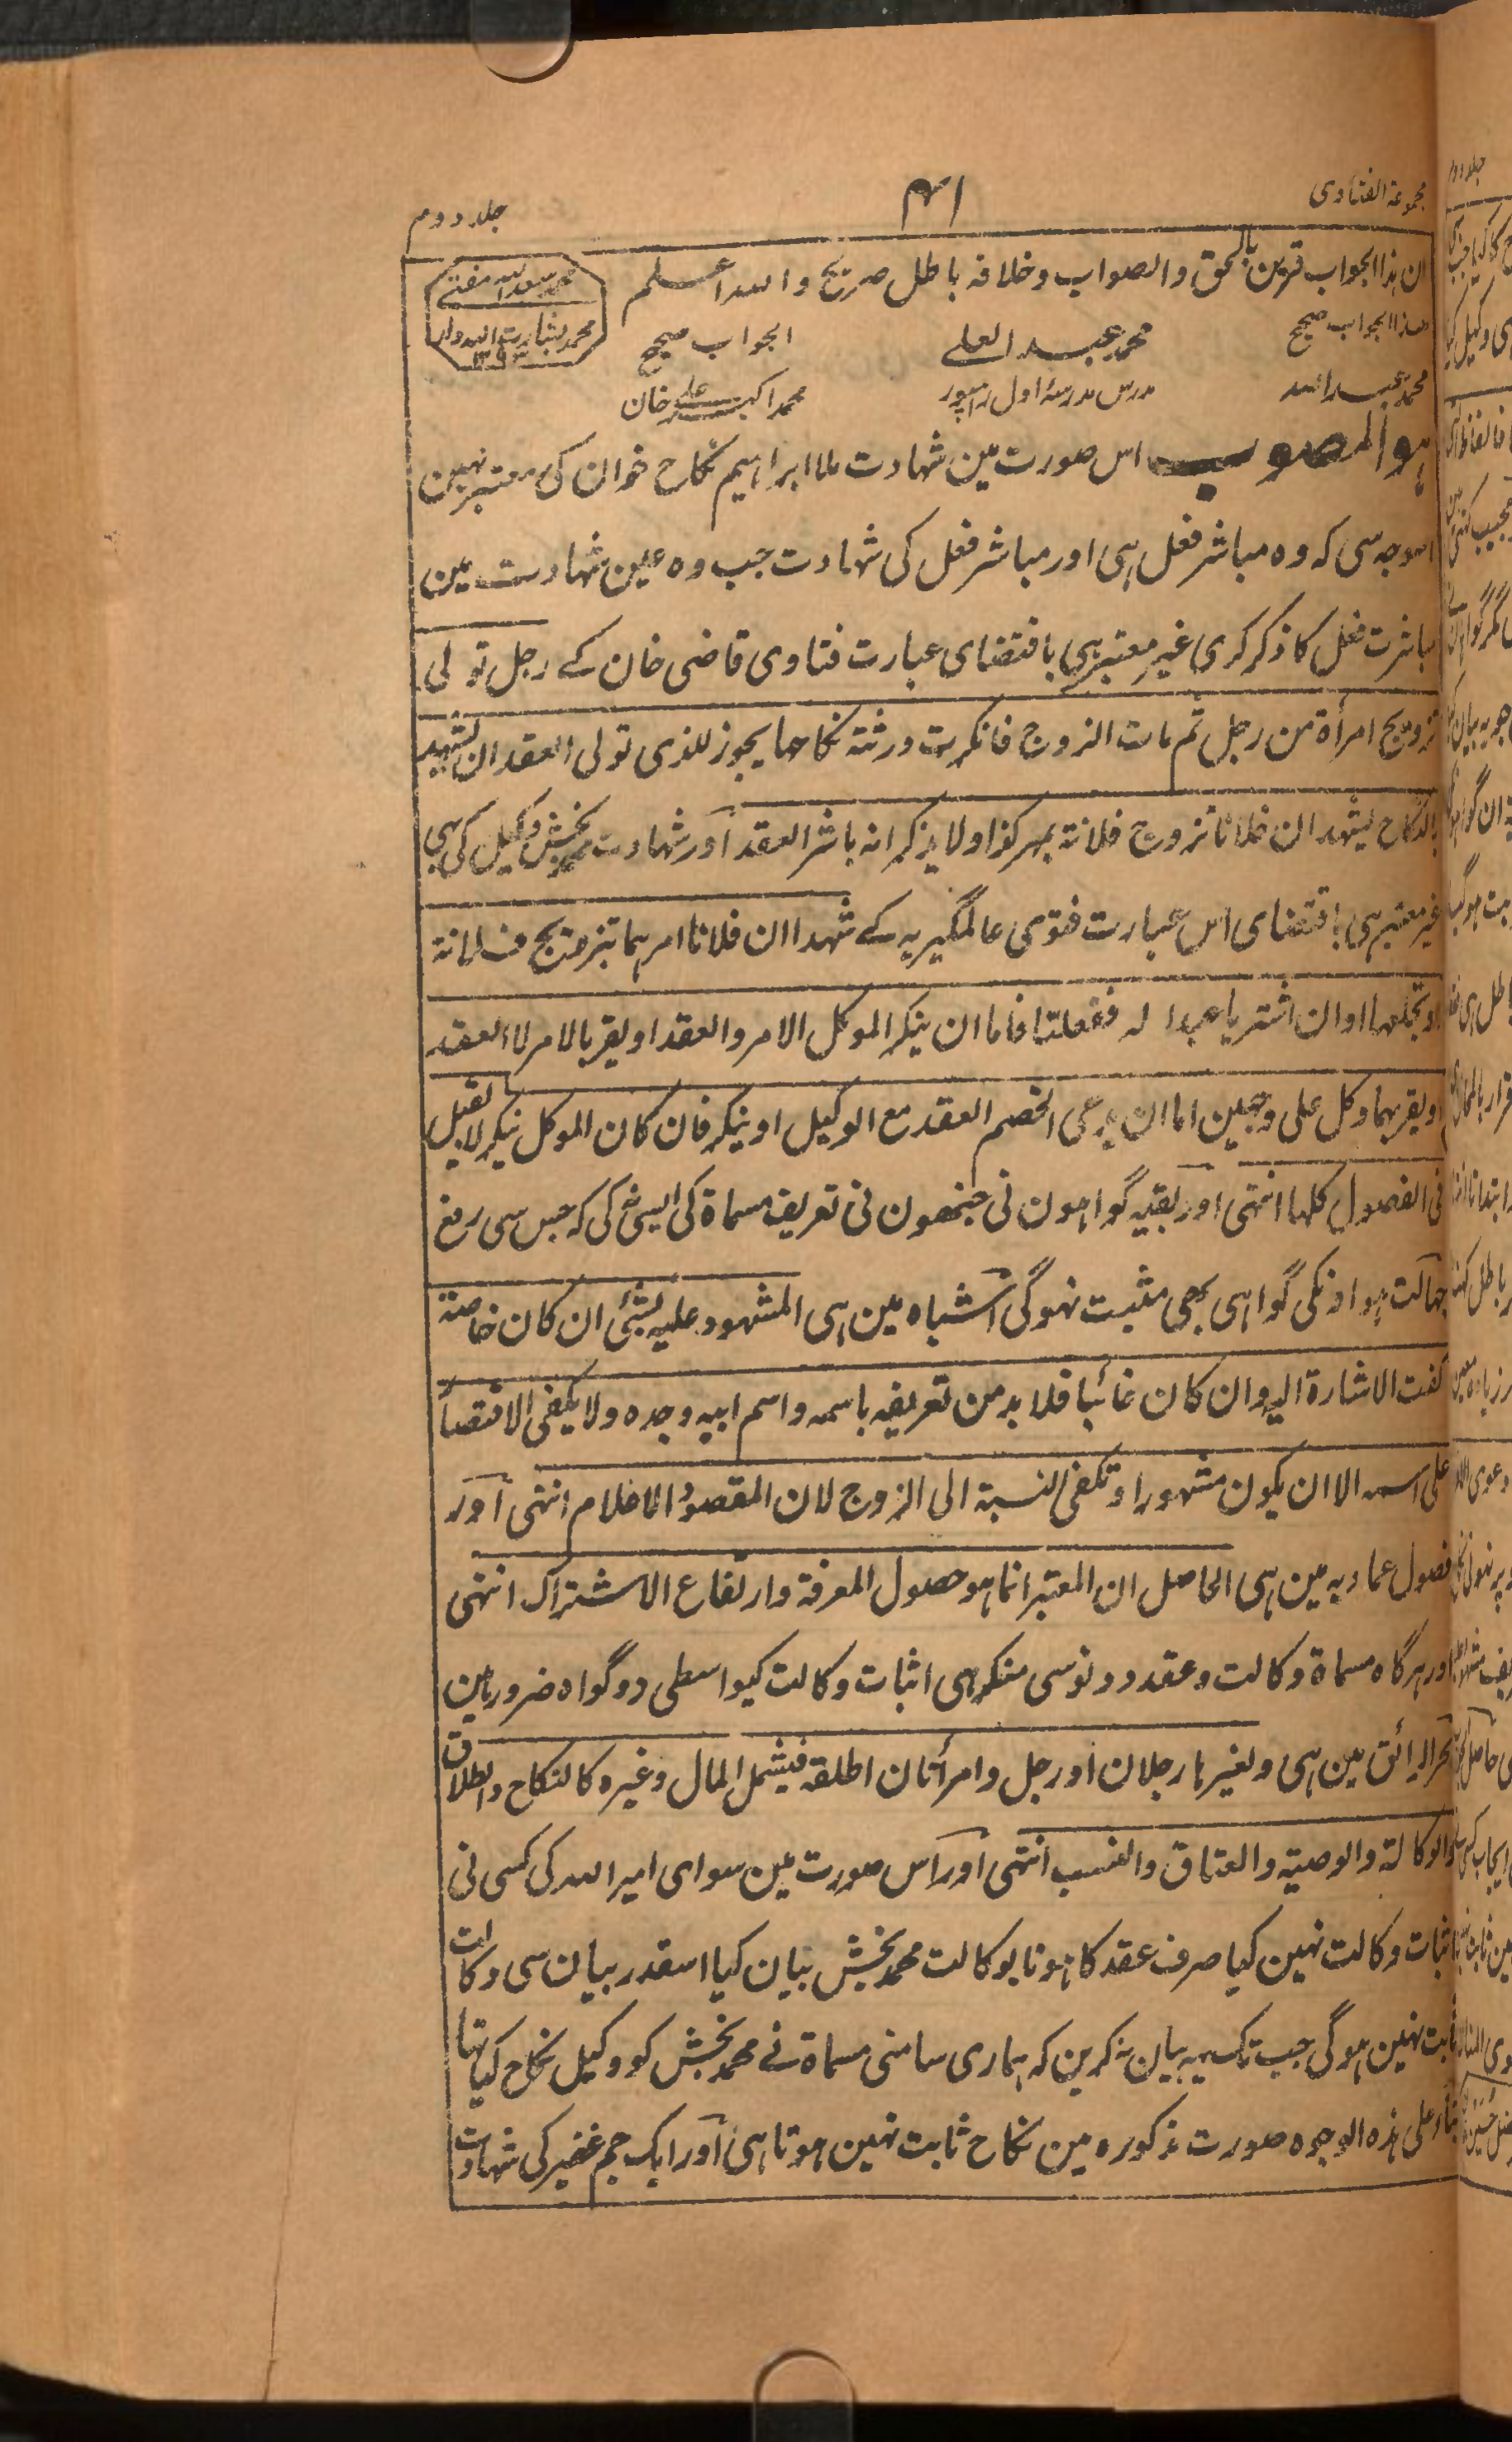 مجموعة الفتاوى
۴۱
جلد دوم
ان ہذا الجواب قرین بالحق والصواب وخلافہ باطل صریح والله اعلم
محمد سعد الله مفتی
محمد بشارت الله
ہذا الجواب صحیح
محمد عبد الله
محمد عبد العلی
مدرس مدرسۂ اول رامپور
الجواب صحیح
محمد اکبر علی خان
ہو المصوب اس صورت مین شہادت ملا ابراہیم نکاح خوان کی معتبر نہین
اسوجہ سی کہ وہ مباشر فعل ہی اور مباشر فعل کی شہادت جب وہ عین شہادت مین
مباشرت فعل کا ذکر کری غیر معتبر ہی باقتضای عبارت فتاوی قاضی خان کے رجل تولی
تزویج امرأة من رجل ثم مات الزوج فانکرت ورثتہ نکاحہا یجوز للذی تولی العقد ان یشہد
بالنکاح یشہد ان فلانا تزوج فلانة بمہر کذا ولا یذکر انہ باشر العقد اور شہادت محمد بخش وکیل کی بہی
غیر معتبر ہی باقتضای اس عبارت فتوی عالمگیریہ کے شہدا ان فلانا امرہما بتزویج فلانة
او بخلعہا او ان اشتریا عبدا لہ ففعلتا فاما ان ینکر الموکل الامر والعقد او یقر بالامر لا العقد
او یقر بہما وکل علی وجہین اما ان یدعی الخصم العقد مع الوکیل او ینکر فان کان الموکل ینکر لا تقبل
فی الفصول کلہا انتہی اور بقیہ گواہون نی جنہون نی تعریف مسماة کی ایسی نکی کہ جس سی رفع
جہالت ہو اونکی گواہی بہی مثبت نہوگی اشباہ مین ہی المشہود علیہ بشئ ان کان حاضرا
کفت الاشارة الیہ وان کان غائبا فلا بد من تعریفہ باسمہ واسم ابیہ وجدہ ولا یکفی الاقتصار
علی اسمہ الا ان یکون مشہورا وتکفی النسبة الی الزوج لان المقصود الاعلام انتہی اور
فصول عمادیہ مین ہی الحاصل ان المعتبر انما ہو حصول المعرفة وارتفاع الاشتراک انتہی
اور ہرگاہ مسماة وکالت وعقد دونوسی منکر ہی اثبات وکالت کیواسطی دو گواہ ضرور ہین
بحر الرائق مین ہی ولغیرہا رجلان او رجل وامرأتان اطلقہ فیشمل المال وغیرہ کالنکاح والطلاق
والوکالة والوصیة والعتاق والنسب انتہی اور اس صورت مین سوای امیر الله کی کسی نی
اثبات وکالت نہین کیا صرف عقد کا ہونا بوکالت محمد بخش بیان کیا اسقدر بیان سی وکالت
ثابت نہین ہوگی جب تک یہ بیان نکرین کہ ہماری سامنی مسماة نے محمد بخش کو وکیل نکاح کیا تہا
بناء علی ہذہ الوجوہ صورت مذکورہ مین نکاح ثابت نہین ہوتا ہی اور ایک جم غفیر کی شہادت